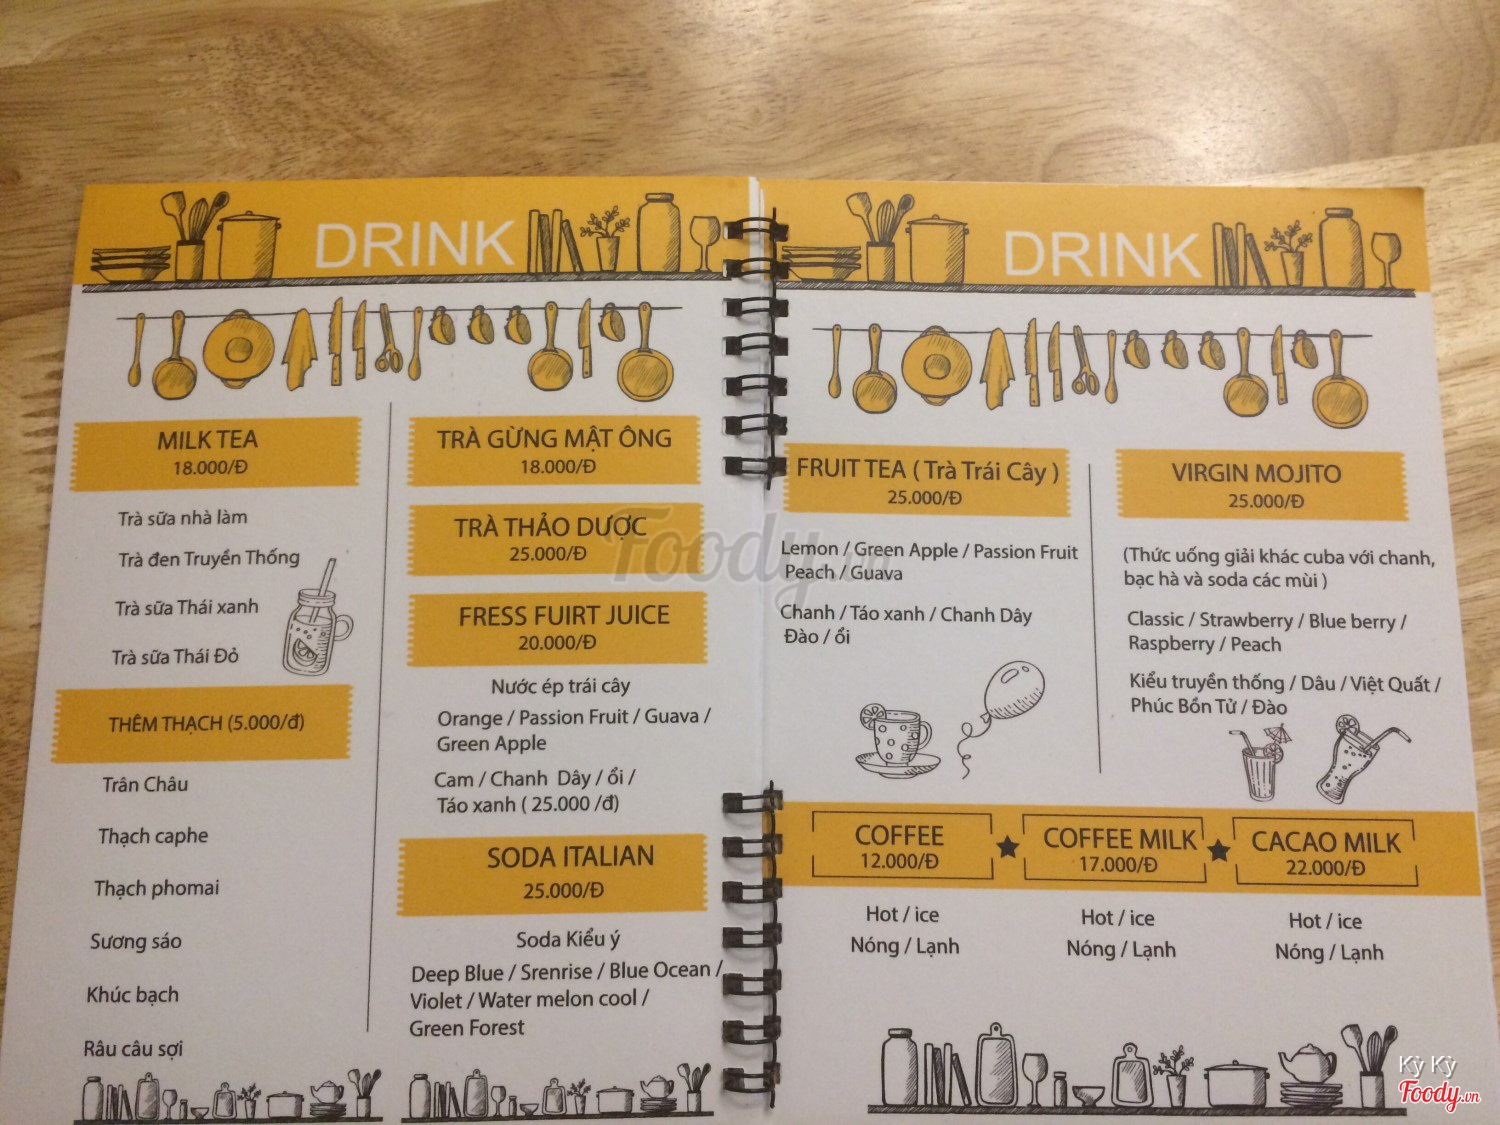 DRINK
MILK TEA
18.000/Đ
Trà sữa nhà làm
Trà đen Truyền Thống
Trà sữa Thái xanh
Trà sữa Thái Đỏ
THÊM THẠCH (5.000/đ)
Trân Châu
Thạch caphe
Thạch phomai
Sương sáo
Khúc bạch
Râu câu sợi
TRÀ GỪNG MẬT ÔNG
18.000/Đ
TRÀ THẢO DƯỢC
25.000/Đ
FRESS FUIRT JUICE
20.000/Đ
Nước ép trái cây
Orange / Passion Fruit / Guava /
Green Apple
Cam / Chanh Dây / ổi /
Táo xanh ( 25.000 /đ)
SODA ITALIAN
25.000/Đ
Soda Kiểu ý
Deep Blue / Srenrise / Blue Ocean /
Violet / Water melon cool /
Green Forest
DRINK
FRUIT TEA ( Trà Trái Cây )
25.000/Đ
Lemon / Green Apple / Passion Fruit
Peach / Guava
Chanh / Táo xanh / Chanh Dây
Đào / ổi
VIRGIN MOJITO
25.000/Đ
(Thức uống giải khác cuba với chanh,
bạc hà và soda các mùi )
Classic / Strawberry / Blue berry /
Raspberry / Peach
Kiểu truyền thống / Dâu / Việt Quất /
Phúc Bồn Tử / Đào
COFFEE
12.000/Đ
Hot / ice
Nóng / Lạnh
COFFEE MILK
17.000/Đ
Hot / ice
Nóng / Lạnh
CACAO MILK
22.000/Đ
Hot / ice
Nóng / Lạnh
Foody.vn
Kỳ Kỳ
Foody.vn